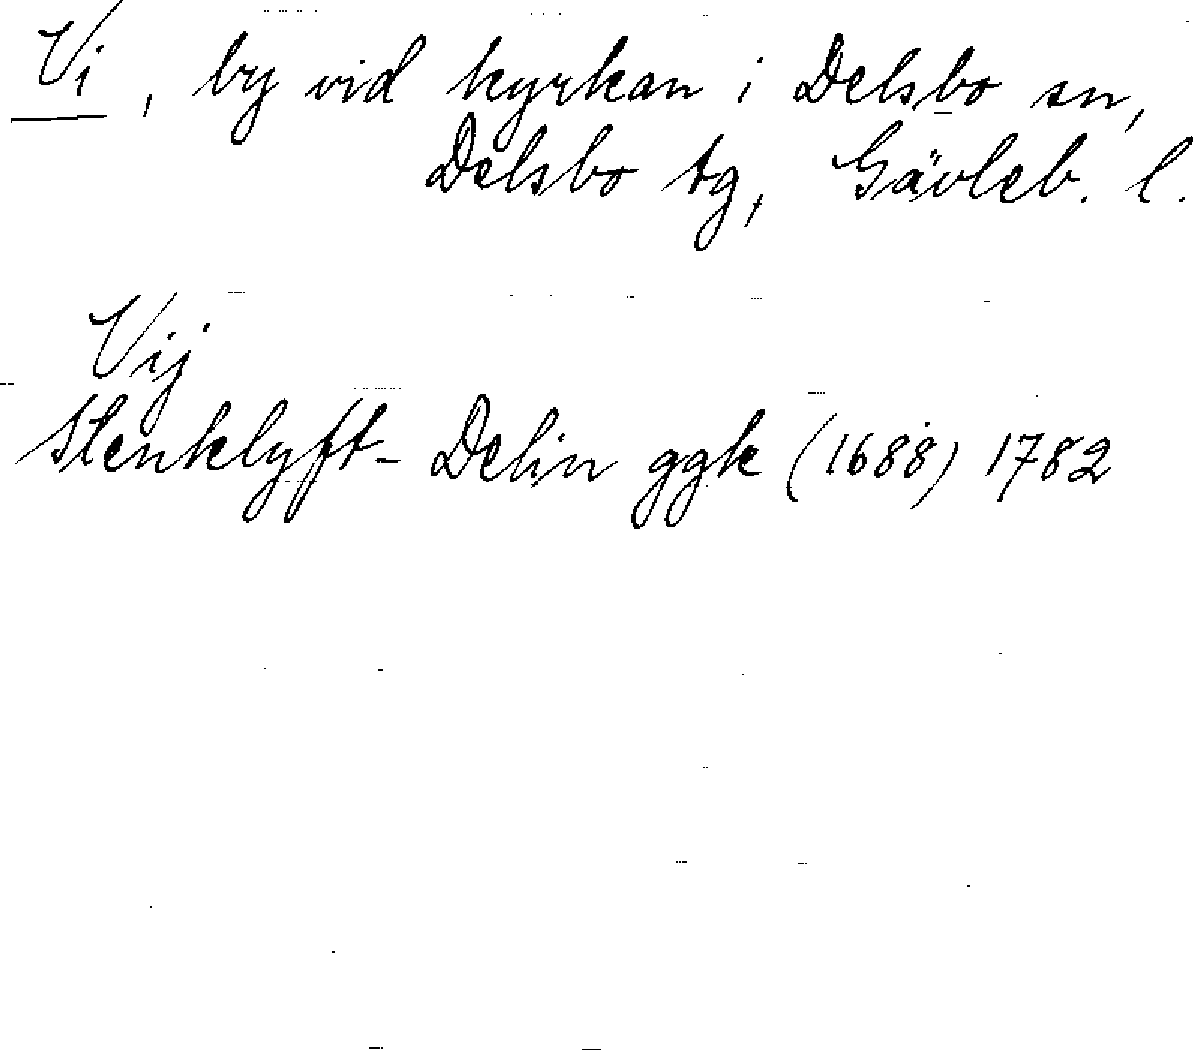 Vi, by vid kyrkan i Delsbo sn,
Delsbo tg, Gävleb. l.
Vij
Stenklyft-Delin ggk (1688) 1782